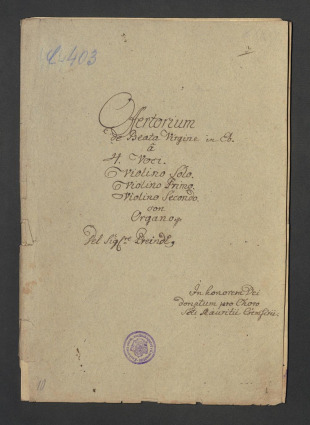 C-403
Offertorium
de Beata Virgine in Eb.
â
4. Voci.
Violino Solo.
Violino Primo.
Violino Secondo.
con
Organo
Del Sig:re Preindl.
In honorem Dei
donatum pro Choro
Sti Mauritii
10